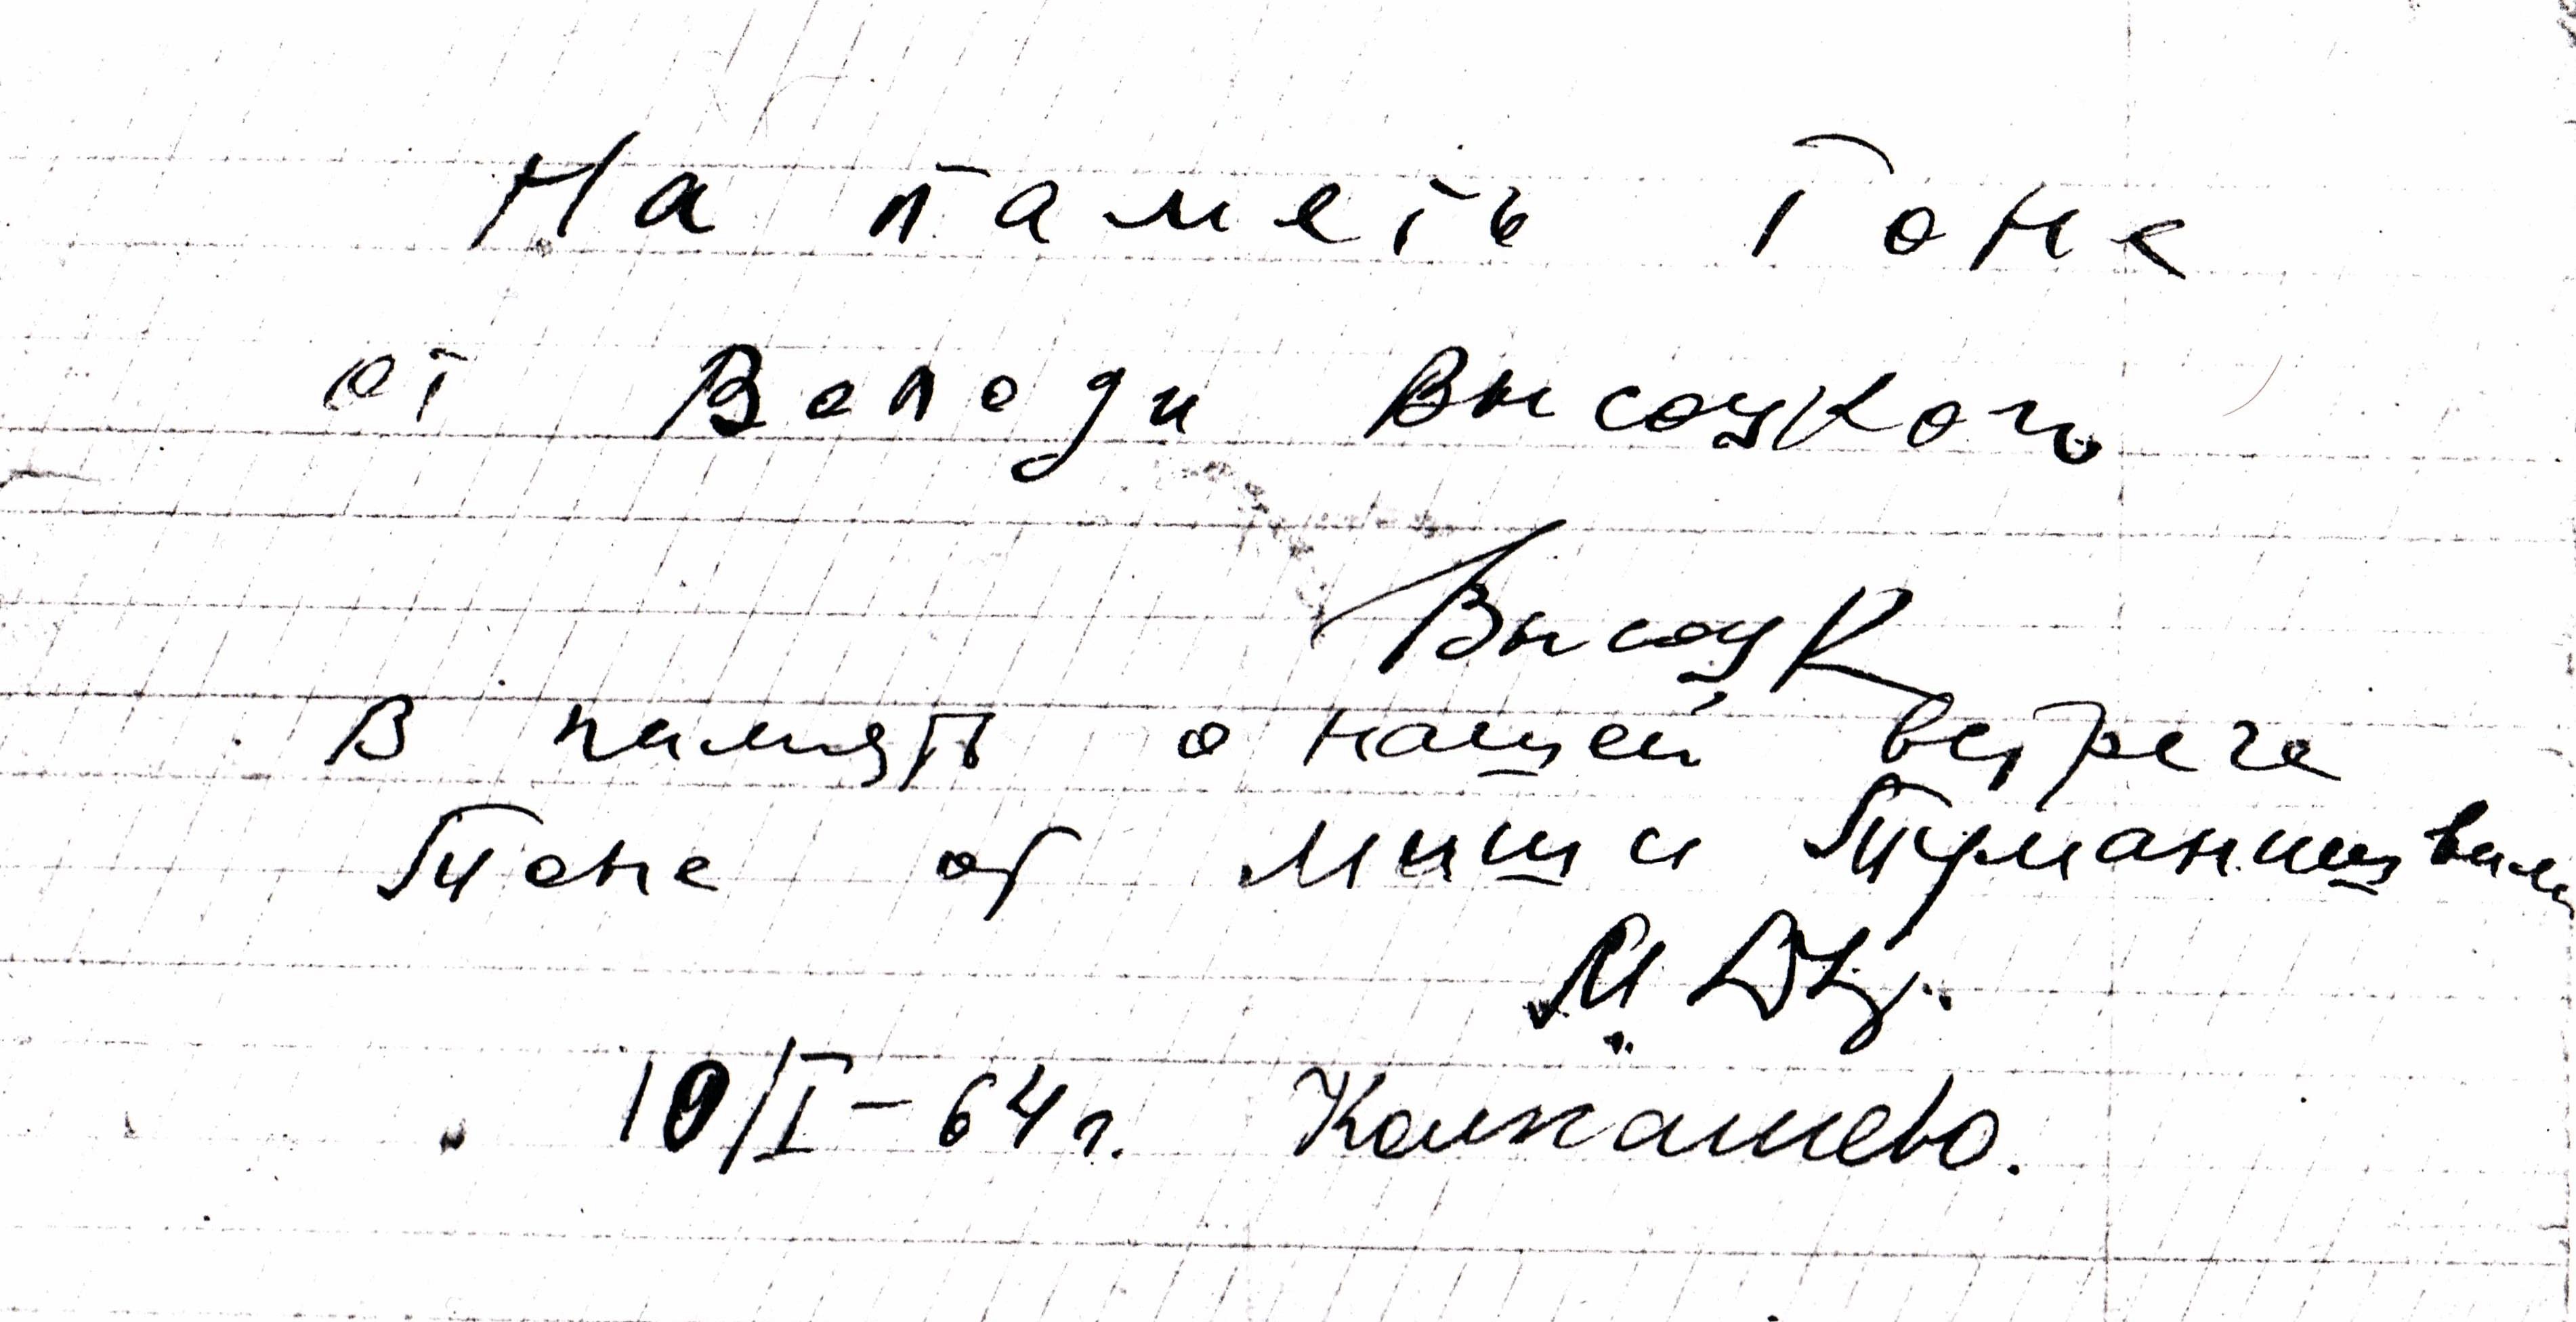 На паметь Тоне
от Володи Высоцкого
Высоцк
В память о нашей встрече
Тоне от Миши Туманишвили
10/I - 64 г. Колпашево.